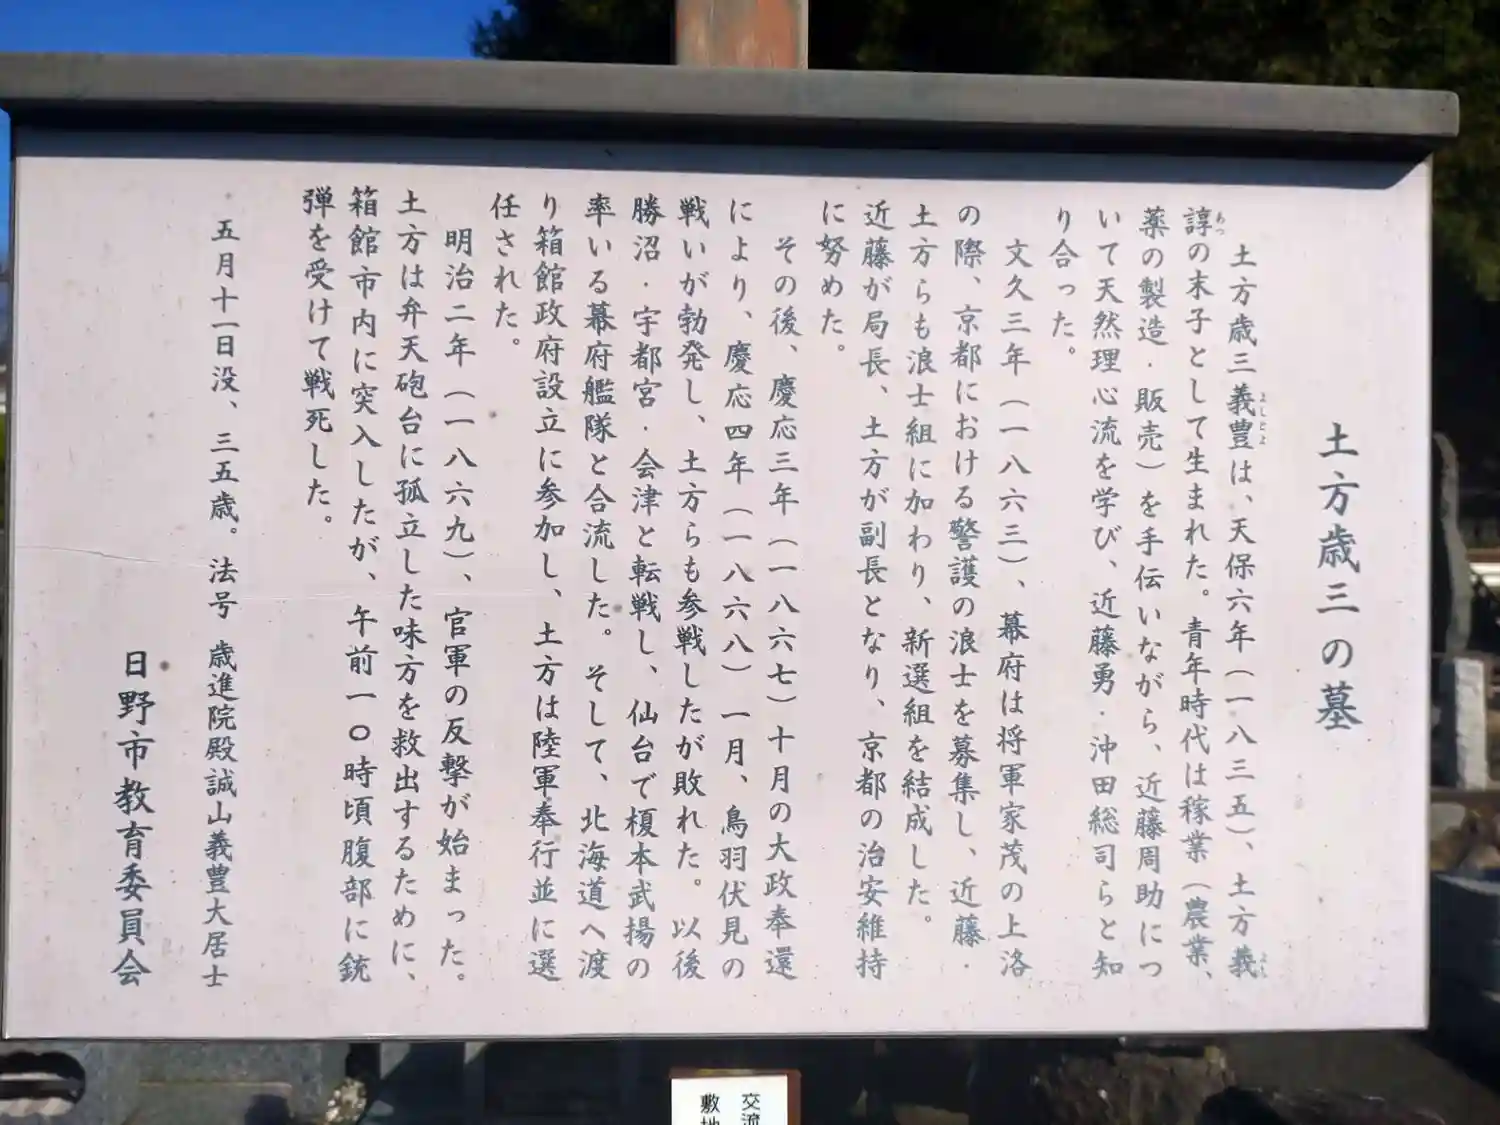 土方歳三の墓
土方歳三義豊は、天保六年（一八三五）、土方義
よしとよ
よし
諄の末子として生まれた。青年時代は稼業（農業、
あつ
薬の製造・販売）を手伝いながら、近藤周助につ
いて天然理心流を学び、近藤勇・沖田総司らと知
り合った。
文久三年（一八六三）、幕府は将軍家茂の上洛
の際、京都における警護の浪士を募集し、近藤・
土方らも浪士組に加わり、新選組を結成した。
近藤が局長、土方が副長となり、京都の治安維持
に努めた。
その後、慶応三年（一八六七）十月の大政奉還
により、慶応四年（一八六八）一月、鳥羽伏見の
戦いが勃発し、土方らも参戦したが敗れた。以後
勝沼・宇都宮・会津と転戦し、仙台で榎本武揚の
率いる幕府艦隊と合流した。そして、北海道へ渡
り箱館政府設立に参加し、土方は陸軍奉行並に選
任された。
明治二年（一八六九）、官軍の反撃が始まった。
土方は弁天砲台に孤立した味方を救出するために、
箱館市内に突入したが、午前一〇時頃腹部に銃
弾を受けて戦死した。
五月十一日没、三五歳。法号 歳進院殿誠山義豊大居士
日野市教育委員会
交流
敷地